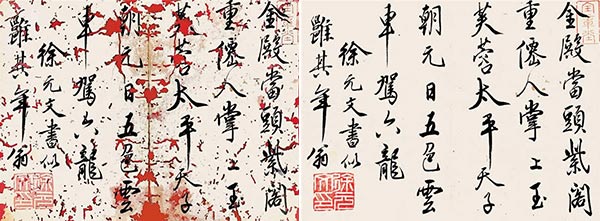 金殿當頭紫閣
重僊人掌上玉
芙蓉太平天子
朝元日五色雲
車駕六龍
徐元文書似
其年翁
金殿當頭紫閣
重僊人掌上玉
芙蓉太平天子
朝元日五色雲
車駕六龍
徐元文書似
其年翁